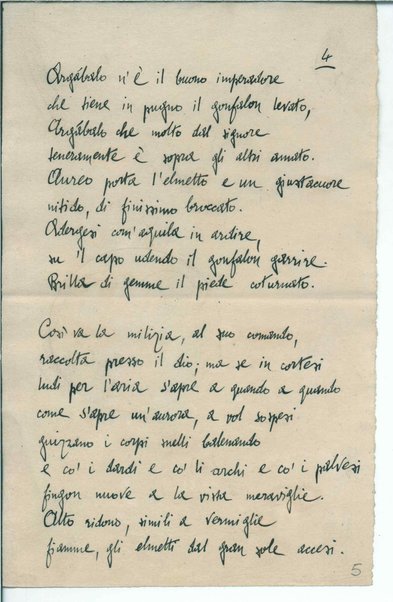 4
Argábalo n'è il buono imperadore
che tiene in pugno il gonfalon levato,
Argábalo che molto dal signore
teneramente è sopra gli altri amato.
Aureo porta l'elmetto e un giustacuore
nitido, di finissimo broccato.
Adergesi com'aquila in ardire,
su il capo udendo il gonfalon garrire.
Brilla di gemme il piede coturnato.
Così va la milizia, al suo comando,
raccolta presso il dio; ma se in cortesi
ludi per l'aria s'apre a quando a quando
come s'apre un'aurora, a vol sospesi
guizzano i corpi snelli balenando
e co' i dardi e co' li archi e co' i palvesi
fingon nuove a la vista meraviglie.
Alto ridono, simili a vermiglie
fiamme, gli elmetti dal gran sole accesi.
5